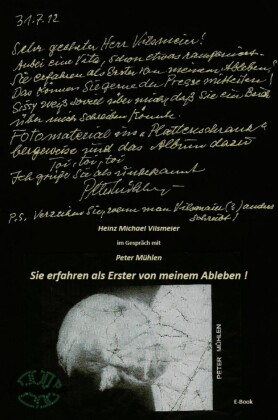 31.7.12
Sehr geehrter Herr Vilsmeier!
Anbei eine Vita, schon etwas
Sie erfahren als Erster von meinem Ableben!
Das können Sie gerne der Presse mitteilen!
Sissy weiß soviel über mich, daß Sie ein Buch
über mich schreiben könnte.
Fotomaterial im Plattenschrank
bergeweise und das Album dazu
Toi, toi, toi
Ich grüße Sie als unbekannt
P.S. Verzeihen Sie, wenn man Vilsmaier(?) anders
schreibt!
Heinz Michael Vilsmeier
im Gespräch mit
Peter Mühlen
Sie erfahren als Erster von meinem Ableben !
PETER MÜHLEN
E-Book